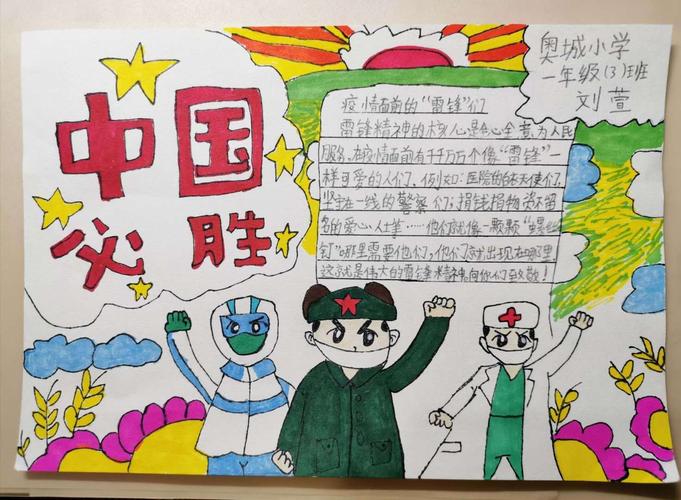 中国
必胜
奥城小学
一年级(3)班
刘萱
疫情面前的“雷锋”们
雷锋精神的核心是全心全意为人民
服务。在疫情面前有千千万万个像“雷锋”一
样可爱的人们、例如：医院的白衣天使们、
坚守在一线的警察们、捐钱捐物资不留
名的爱心人士等……他们就像一颗颗“螺丝
钉”哪里需要他们，他们就出现在哪里
这就是伟大的雷锋精神。向你们致敬！